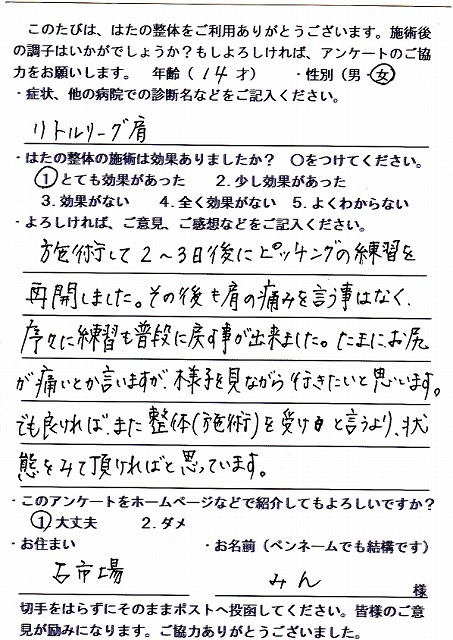 このたびは、はたの整体をご利用ありがとうございます。施術後
の調子はいかがでしょうか？もしよろしければ、アンケートのご協
力をお願いします。 年齢（ 14 才） ・性別（男・女）
・症状、他の病院での診断名などをご記入ください。
リトルリーグ肩
・はたの整体の施術は効果ありましたか？ ○をつけてください。
1 とても効果があった 2. 少し効果があった
3. 効果がない 4. 全く効果がない 5. よくわからない
・よろしければ、ご意見、ご感想などをご記入ください。
施術して2～3日後にピッチングの練習を
再開しました。その後も肩の痛みを言う事はなく、
序々に練習も普段に戻す事が出来ました。たまにお尻
が痛いとか言いますが、様子を見ながら行きたいと思います。
でも良ければ、また整体(施術)を受け と言うより、状
態をみて頂ければと思っています。
・このアンケートをホームページなどで紹介してもよろしいですか？
1 大丈夫 2. ダメ
・お住まい ・お名前（ペンネームでも結構です）
古市場 みん 様
切手をはらずにそのままポストへ投函してください。皆様のご意
見が励みになります。ご協力ありがとうございました。